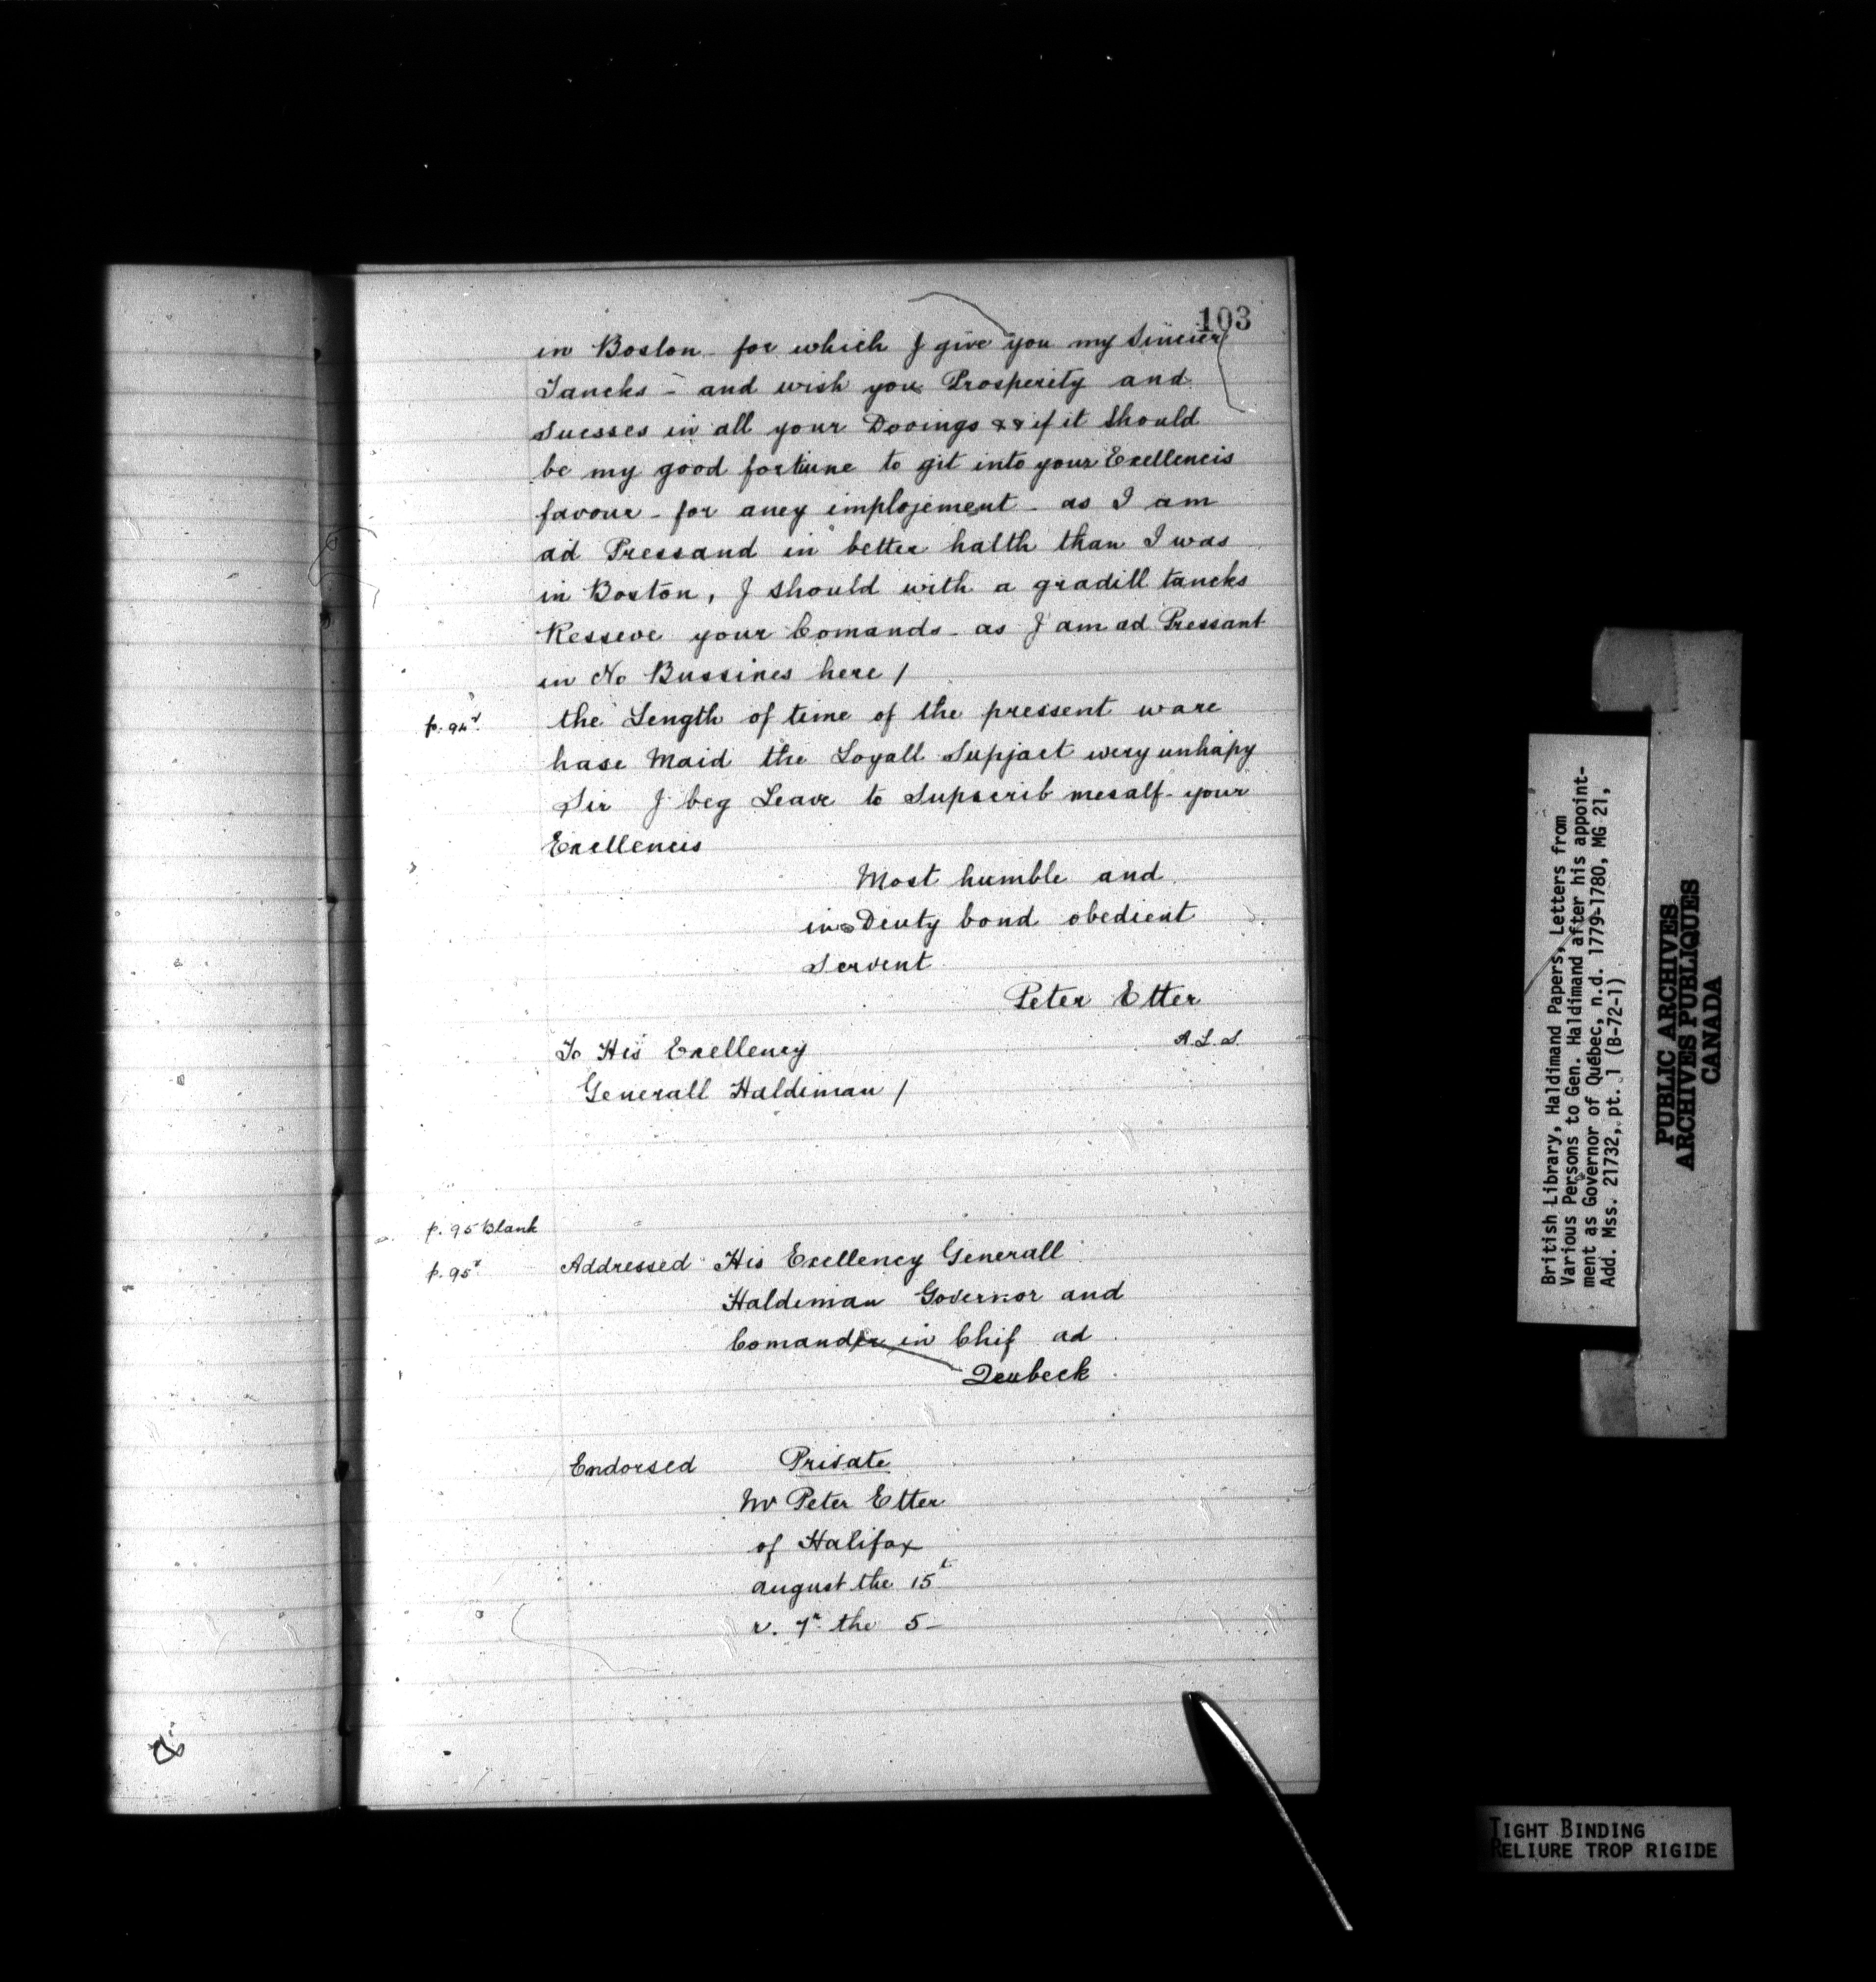 103
in Boston - for which I give you my Sincier
Tancks - and wish you Prosperity and
Suesses in all your Dooings && if it Should
be my good fortiune to git into your Exellencis
favour - for aney implojement - as I am
ad Pressand in better halth than I was
in Boston, I should with a gradill tancks
Resseve your Comands - as I am ad Pressant
in No Bussines here /
p. 94v.
the Length of time of the pressent ware
hase Maid the Loyall Supjact wery unhapy
Sir I beg Leave to Supscrib mesalf your
Exellencis
Most humble and
in Deuty bond obedient
Servent
Peter Etter
A.L.S.
To His Exellency
Generall Haldiman /
p. 95 Blank
p. 95v.
Addressed His Exellency Generall
Haldiman Governor and
Comander in Chif ad
Qeubeck
Endorsed Private
Mr Peter Etter
of Halifax
august the 15t
r. 7r the 5 -
British Library, Haldimand Papers, Letters from
Various Persons to Gen. Haldimand after his appoint-
ment as Governor of Québec, n.d. 1779-1780, MG 21,
Add. Mss. 21732, pt. 1 (B-72-1)
PUBLIC ARCHIVES
ARCHIVES PUBLIQUES
CANADA
TIGHT BINDING
RELIURE TROP RIGIDE